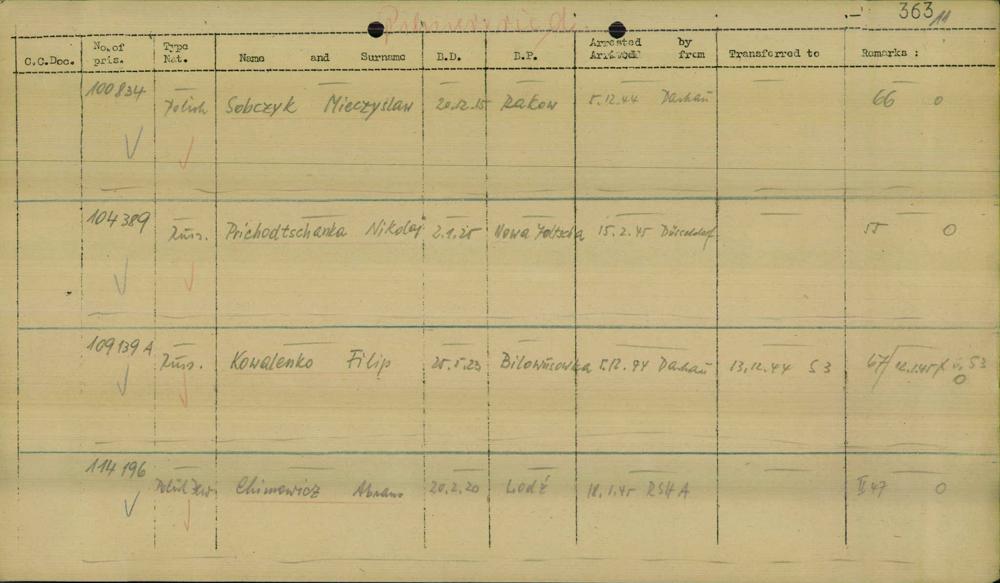 363 11
C.C.Doc. No. of pris. Type Nat. Name and Surname B.D. B.P. Arrested by Arrived from Transferred to Remarks :
100834 Polish Sobczyk Mieczyslaw 20.12.15 Rakow 5.12.44 Dachau 66 0
104389 Russ. Prichodtschanka Nikolaj 2.1.25 Nowa 15.2.45 Düsseldorf 55 0
109139 A Russ. Kowalenko Filip 25.5.23 5.12.44 Dachau 13.12.44 S3 67/12.1.45 v. S3 0
114196 Polish Jew. Chimowicz Abram 20.2.20 Lodź 18.1.45 RSHA II 47 0